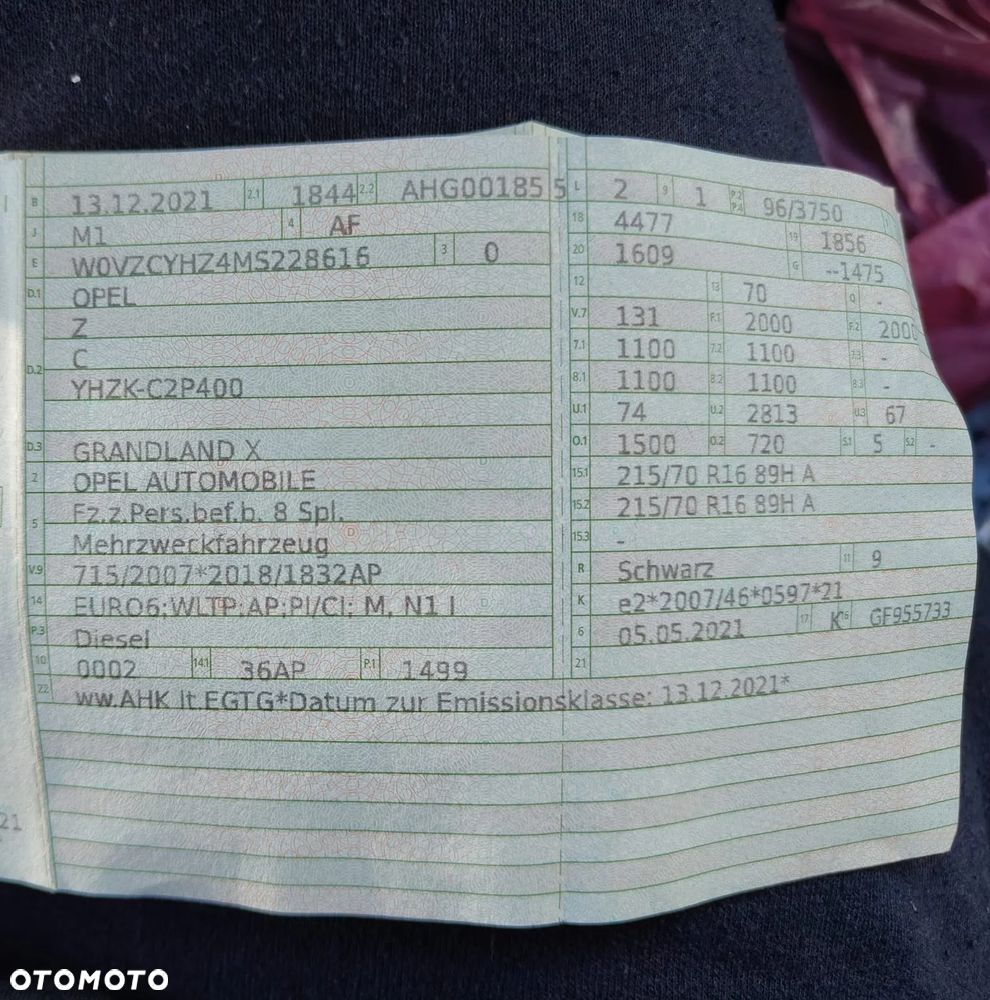 B 13.12.2021 2.1 1844 2.2 AHG00185 5
J M1 4 AF
E W0VZCYHZ4MS228616 3 0
D.1 OPEL
Z
D.2 C
YHZK-C2P400
D.3 GRANDLAND X
2 OPEL AUTOMOBILE
5 Fz.z.Pers.bef.b. 8 Spl.
Mehrzweckfahrzeug
V.9 715/2007*2018/1832AP
14 EURO6;WLTP;AP;PI/CI; M, N1 I
P.3 Diesel
10 0002 14.1 36AP P.1 1499
L 2 9 1 P.2 P.4 96/3750
18 4477 19 1856
20 1609 G --1475
12 13 70 Q -
V.7 131 F.1 2000 F.2 2000
7.1 1100 7.2 1100 7.3 -
8.1 1100 8.2 1100 8.3 -
U.1 74 U.2 2813 U.3 67
O.1 1500 O.2 720 S.1 5 S.2 -
15.1 215/70 R16 89H A
15.2 215/70 R16 89H A
15.3 -
R Schwarz 11 9
K e2*2007/46*0597*21
6 05.05.2021 17 K 16 GF955733
21
22 ww.AHK lt.EGTG*Datum zur Emissionsklasse: 13.12.2021*
21
OTOMOTO